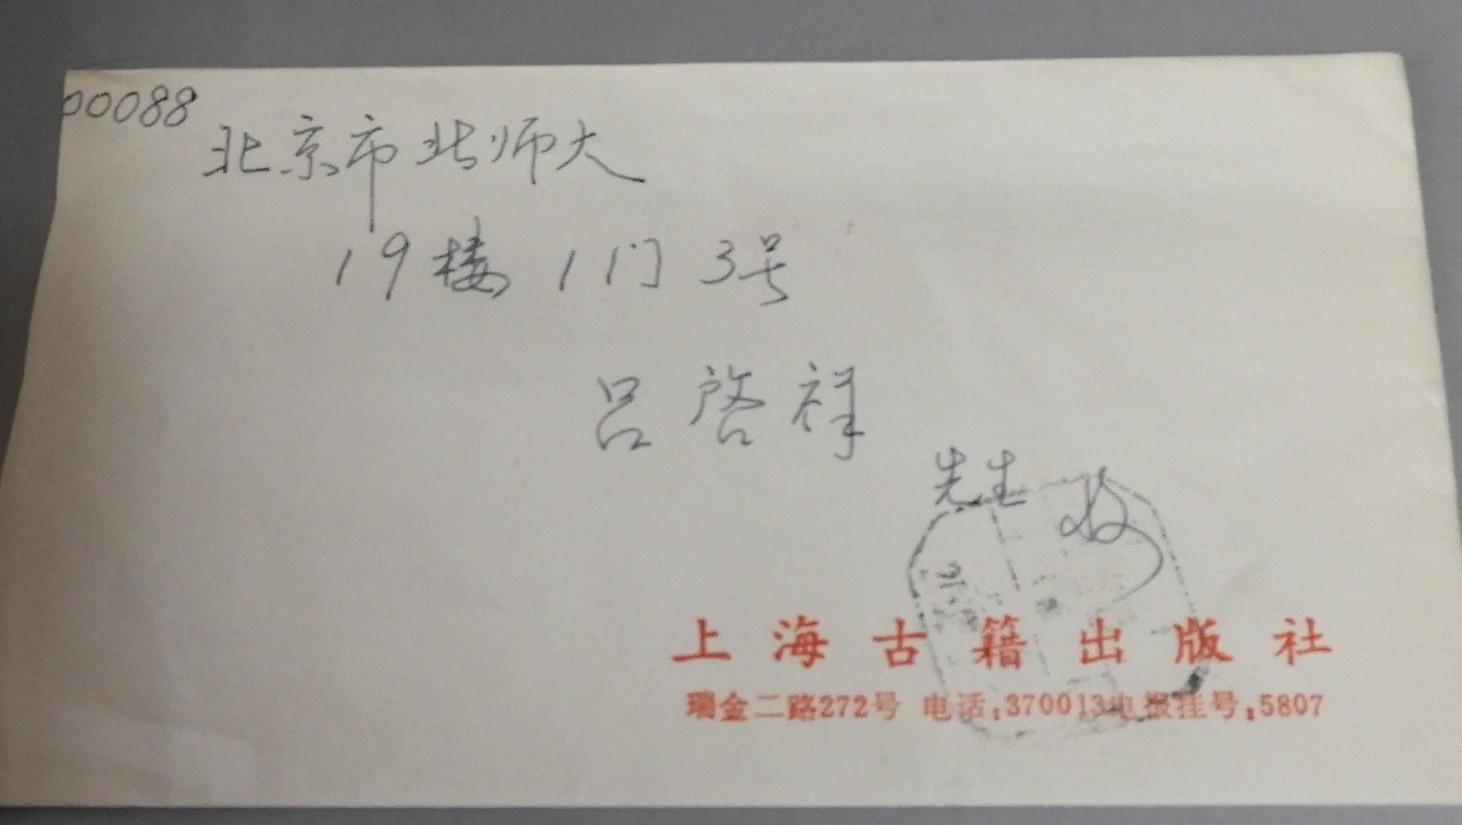 00088
北京市北师大
19楼1门3号
吕启祥
先生 收
上海古籍出版社
瑞金二路272号 电话:370013电报挂号:5807